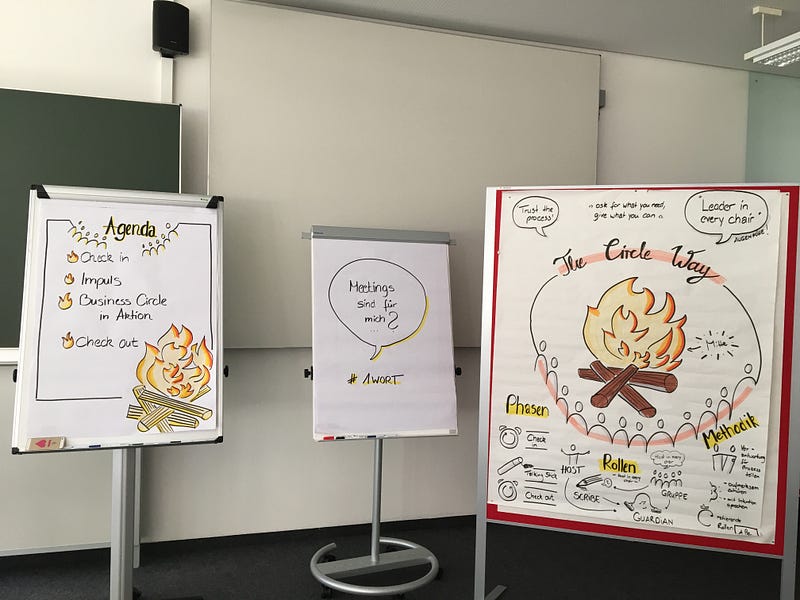 Agenda
Check in
Impuls
Business Circle
in Aktion
Check out
Meetings
sind für
mich ?
...
# 1 WORT
Trust the
process!
ask for what you need,
give what you can
"Leader in
every chair"
The Circle Way
Mitte
Phasen
Check
in
Talking Stick
Check out
HOST
Rollen
SCRIBE
GRUPPE
GUARDIAN
Methodik
Ver-
antwortung
für
Prozess
teilen
- aufmerksam
zuhören
- mit Intention
sprechen
- rotierende
Rollen